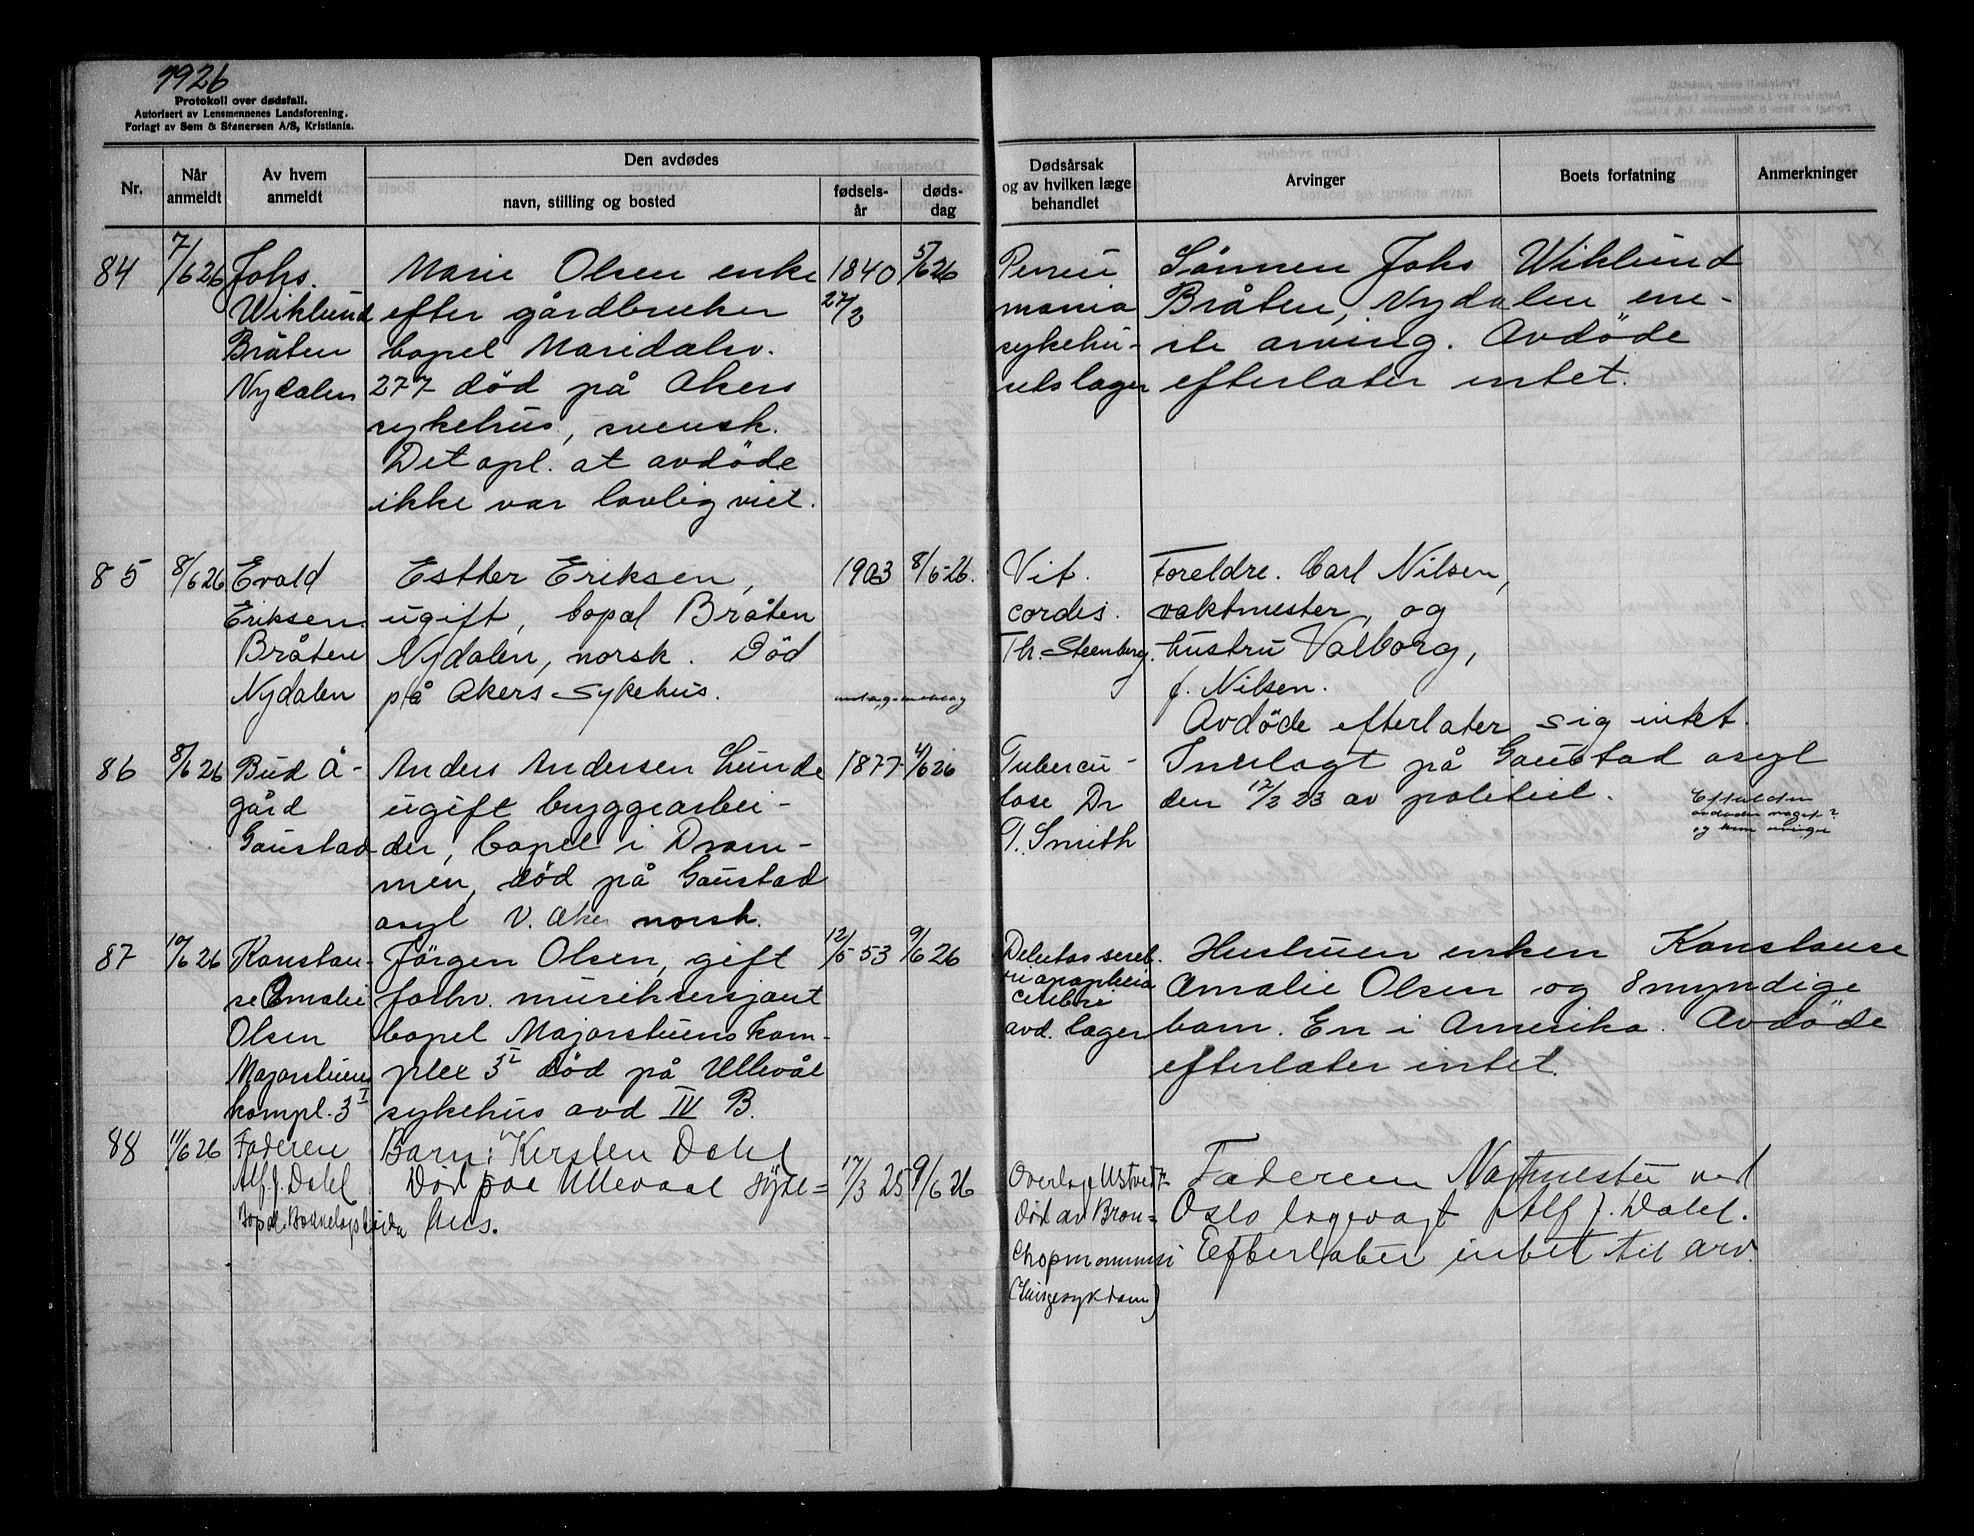 1926
Protokoll over dødsfall.
Autorisert av Lensmennenes Landsforening.
Forlagt av Sem & Stenersen A/S, Kristiania.
Nr.
Når anmeldt
Av hvem anmeldt
Den avdødes
navn, stilling og bosted
fødselsår
dødsdag
Dødsårsak og av hvilken læge behandlet
Arvinger
Boets forfatning
Anmerkninger
84
7/6 26
Johs.
Wiklund
Bråten
Nydalen
Marie Olsen enke
efter gårdbruker
bopel Maridalsv.
277 död på Akers
sykehus, svensk.
Det opl. at avdöde
ikke var lovlig viet.
1840
27/2
5/6 26
mania
sykehu-
sets læger
Sönnen Johs Wiklund
Bråten, Nydalen ene-
ste arving. Avdöde
efterlater intet.
85
8/6 26
Evald
Eriksen.
Bråten
Nydalen
Esther Eriksen,
ugift, bopal Bråten
Nydalen, norsk. Död
på Akers sykehus.
1903
8/6-26.
Vit.
cordis.
Th. Steenberg.
Foreldre. Carl Nilsen,
vaktmester, og
hustru Valborg,
f. Nilsen.
Avdöde efterlater sig intet.
86
8/6 26
Bud Å-
gård
Gaustad
Anders Andersen Lunde
ugift bryggearbei-
der, bopel i Dram-
men, död på Gaustad
asyl V. Aker norsk.
1877
4/6 26
Tubercu-
lose Dr
T. Smith
Innlagt på Gaustad asyl
den 12/2 23 av politiet.
Efterlater
avdøde noget?
og hvem arvinger
87
10/6 26
Konstan-
se Amalie
Olsen
Majorstuens
kompl. 3 I
Jörgen Olsen, gift
forhv. musiksersjant
bopel Majorstuens kom-
plex 3 I död på Ullevål
sykehus avd IV B.
12/5-53
9/6 26
avd. læger
Hustruen enken Konstanse
Amalie Olsen og 8 myndige
barn. En i Amerika. Avdöde
efterlater intet.
88
11/6 26
Faderen
Alf. J. Dahl
Bopel.
Barn: Kirsten Dahl
Död paa Ullevaal Syke=
hus.
17/3 25
9/6 26
Overlæge Ustvedt
Död av Bron=
chopneumoni
(Lungesykdom)
Faderen
ved
Oslo Alf J. Dahl.
Efterlater intet til arv.